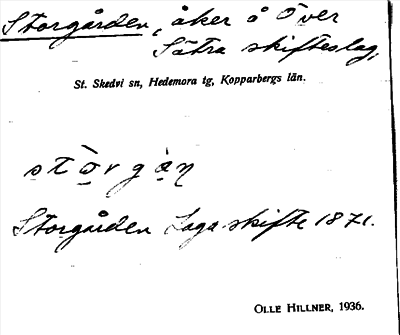 Storgården, åker å Över
Sätra skifteslag,
St. Skedvi sn, Hedemora tg, Kopparbergs län.
stò̠rgà̠ṇ
Storgården Laga skifte 1871.
OLLE HILLNER, 1936.